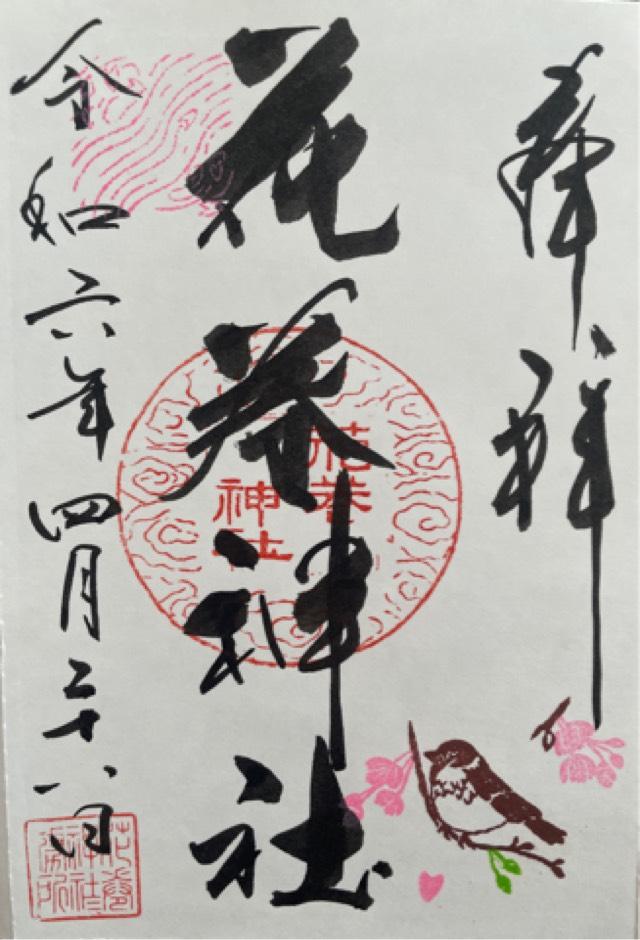 奉拝
花巻神社
花巻
神社
令和六年四月二十八日
花巻
神社
務所